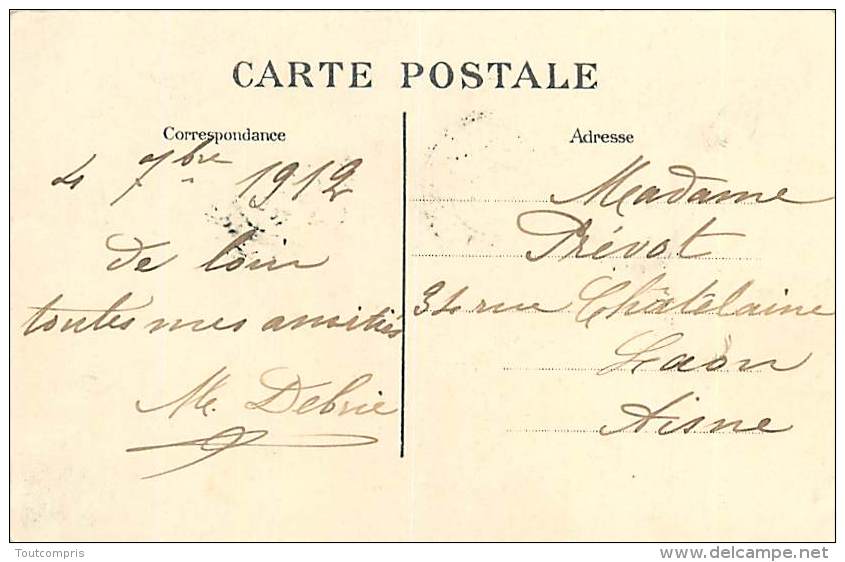 CARTE POSTALE
Correspondance
4 7bre 1912
de loin
toutes mes amitiés
M. Debrie
Adresse
Madame
Prévot
34 rue Châtelaine
Laon
Aisne
Toutcompris
delcampe.net